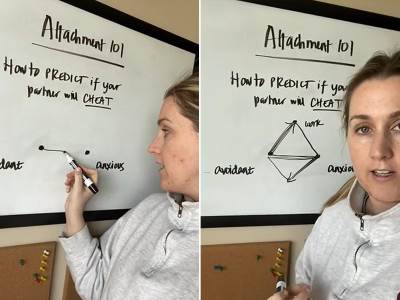 Attachment 101
How to PREDICT if your
partner will CHEAT
dant
anxious
Attachment 101
How to PREDICT if your
partner will CHEAT
work
avoidant
anxious